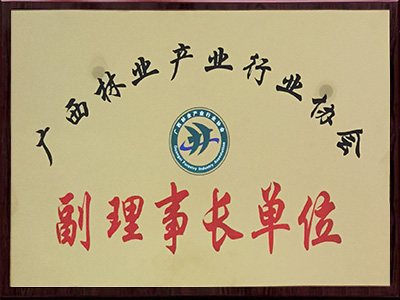 广西林业产业行业协会
广西林业产业行业协会
Guangxi Forestry Industry Association
副理事长单位